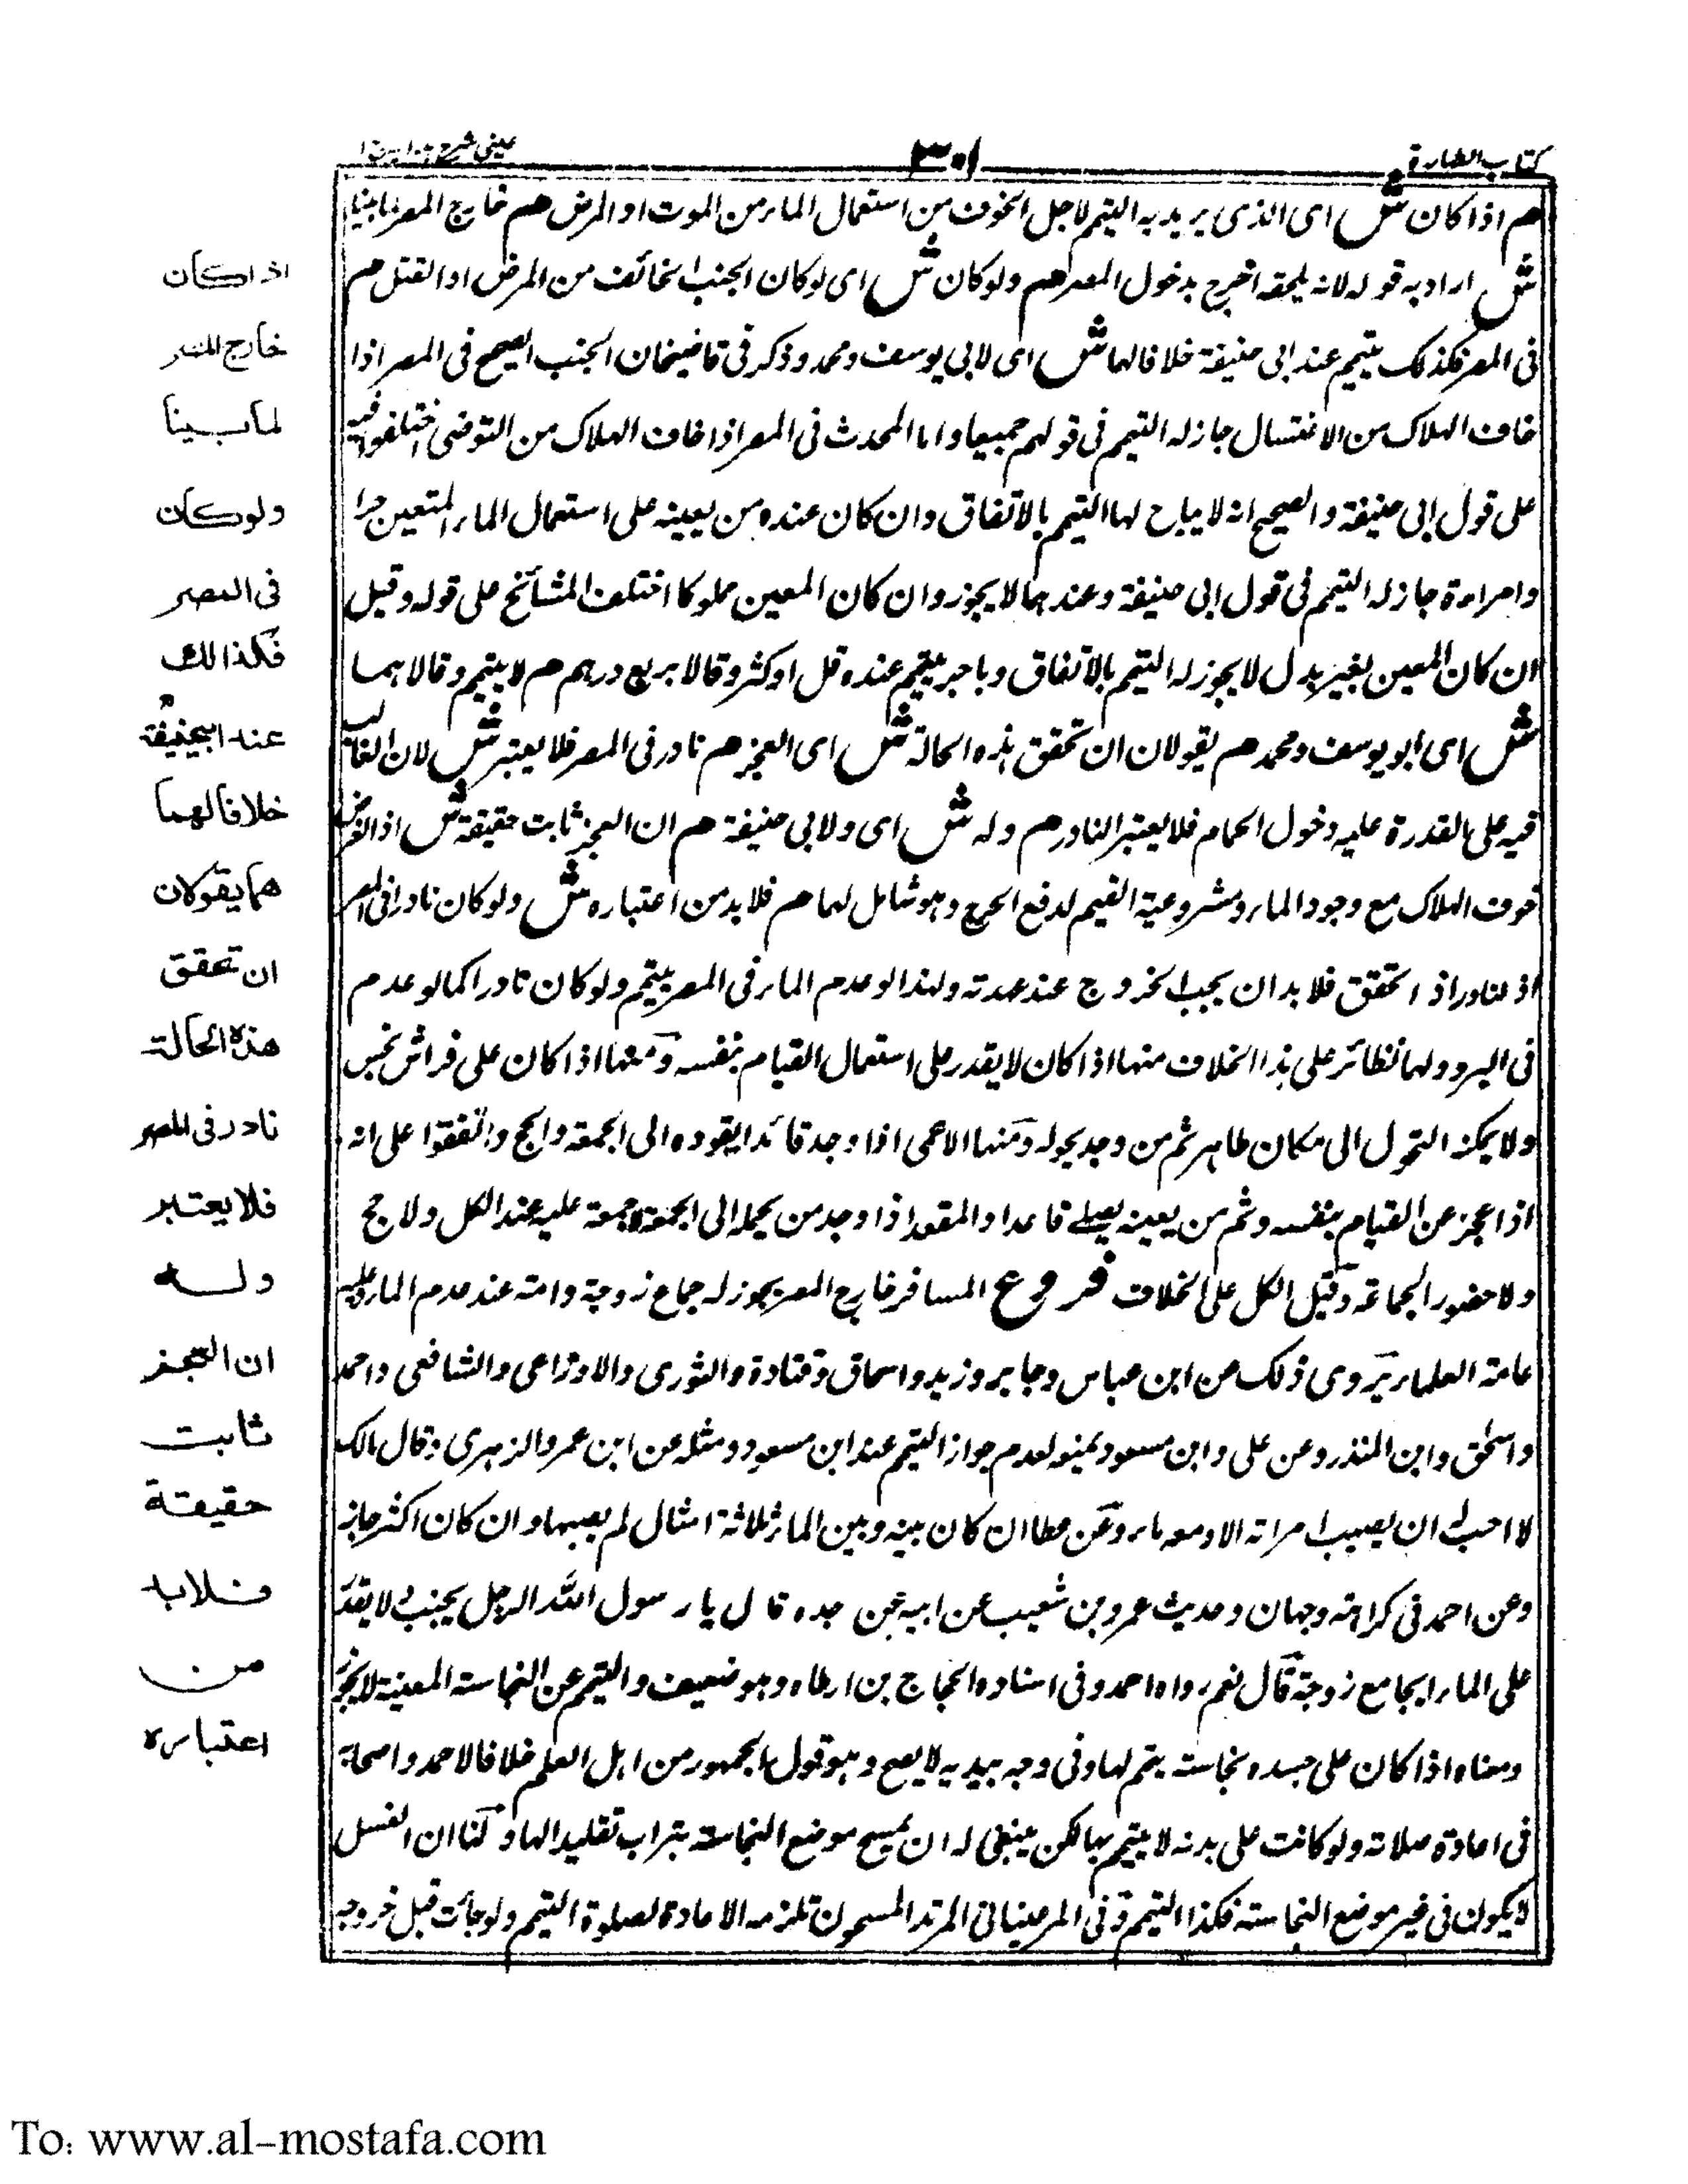 كتاب الطهارة
٣٠١
عينى شرح هداية ج ١
هم اذا كان ش اى الذى يريد به التيمم لاجل الخوف من استعمال الماء من الموت او المرض هم خارج المصر لما بينا
ش اراد به قوله لانه يلحقه الحرج بدخول المصر هم ولو كان ش اى لو كان الجنب الخائف من المرض او القتل هم
فى المصر فكذلك يتيمم عند ابى حنيفة خلافا لهما ش اى لابى يوسف ومحمد وذكر فى قاضيخان الجنب الصحيح فى المصر اذا
خاف الهلاك من الاغتسال جاز له التيمم فى قولهم جميعا واما المحدث فى المصر اذا خاف الهلاك من التوضى اختلفوا فيه
على قول ابى حنيفة والصحيح انه لا يباح لها التيمم بالاتفاق وان كان عنده من يعينه على استعمال الماء المتعين حرا
وامراءة جاز له التيمم فى قول ابى حنيفة وعندهما لا يجوز وان كان المعين مملوكا اختلف المشائخ على قوله وقيل
ان كان المعين بغير بدل لا يجوز له التيمم بالاتفاق وباجر يتيمم عنده قل او كثر وقالا بربع درهم هم لا يتيمم وقالا هما
ش اى ابو يوسف ومحمد هم يقولان ان تحقق هذه الحالة ش اى العجز هم نادر فى المصر فلا يعتبر ش لان الغالب
فيه على القدرة عليه دخول الحمام فلا يعتبر النادر هم وله ش اى ولابى حنيفة هم ان العجز ثابت حقيقة ش اذ الفرض
خوف الهلاك مع وجود الماء ومشروعية التيمم لدفع الحرج وهو شامل لهما هم فلا بد من اعتباره ش ولو كان نادرا فى المصر
اذ النادر اذا تحقق فلا بد ان يجب الخروج عند عهدته ولهذا لو عدم الماء فى المصر يتيمم ولو كان نادرا كما لو عدم
فى البر ولهما نظائر على هذا الخلاف منها اذا كان لا يقدر على استعمال القيام بنفسه ومنها اذا كان على فراش نجس
ولا يمكنه التحول الى مكان طاهر ثم من وجد يحوله ومنها الاعمى اذا وجد قائدا يقوده الى الجمعة والحج واتفقوا على انه
اذا عجز عن القيام بنفسه وثم من يعينه يصلے قاعدا والمقعد اذا وجد من يحمله الى الجمعة لا جمعة عليه عند الكل ولا حج
ولا حضور الجماعة وقيل الكل على الخلاف فروع المسافر خارج المصر يجوز له جماع زوجة وامته عند عدم الماء وعليه
عامة العلماء يروى ذلك عن ابن عباس وجابر وزيد واسحاق وقتادة والثورى والاوزاعى والشافعى واحمد
واسحٰق وابن المنذر وعن على وابن مسعود يمنع لعدم جواز التيمم عند ابن مسعود ومثله عن ابن عمر والزهرى وقال مالك
لا احب ان يصيب امراته الا ومعه ماء وعن عطا ان كان بينه وبين الماء ثلاثة امثال لم يصبها وان كان اكثر جاز
وعن احمد فى كراهته وجهان وحديث عمرو بن شعيب عن ابيه عن جده قال يا رسول الله الرجل يجنب لا يقدر
على الماء ايجامع زوجة قال نعم رواه احمد وفى اسناده الحجاج بن ارطاه وهو ضعيف والتيمم عن النجاسة المعينة لا يجوز
ومعناه اذا كان على جسده نجاسة يتمم لها وفى وجه بيديه لا يصح وهو قول الجمهور من اهل العلم خلافا لاحمد واصحابه
فى اعادة صلاته ولو كانت على بدنه لا يتيمم بها لكن ينبغى له ان يمسح موضع النجاسة بتراب تقليدا لها ولنا ان الغسل
لا يكون فى غير موضع النجاسة فكذا التيمم وفى المرغينانى المرتد المسحون تلزمه الاعادة لصلوة التيمم ولو جائت قبل خروجه
اذا كان
خارج المصر
لما بينا
ولو كان
فى المصر
فكذالك
عند ابيحنيفة
خلافا لهما
هما يقولان
ان تحقق
هذه الحالة
نادر فى المصر
فلا يعتبر
وله
ان العجز
ثابت
حقيقة
فلا بد
من
اعتباره
To: www.al-mostafa.com